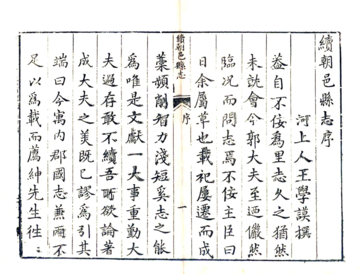 續朝邑縣志序
河上人王學謨撰
益自不佞爲里志久之猶然
未說會今郭大夫至迺儼然
臨况而問志焉不佞主臣曰
日余屬草也載祀屢遷而成
藁頻削智力淺短奚志之能
爲唯是文獻一大事重勤大
夫過存敢不續吾所欲論著
成大夫之美既已謬爲引其
端曰今㝢内郡國志蕪而不
足以爲載而薦紳先生徃：
續朝邑縣志
序
一